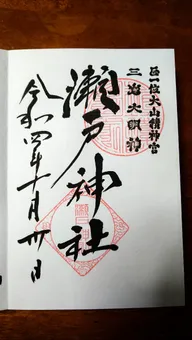 正一位大山積神宮
三島大明神
瀬戸神社
令和四年十月卅日